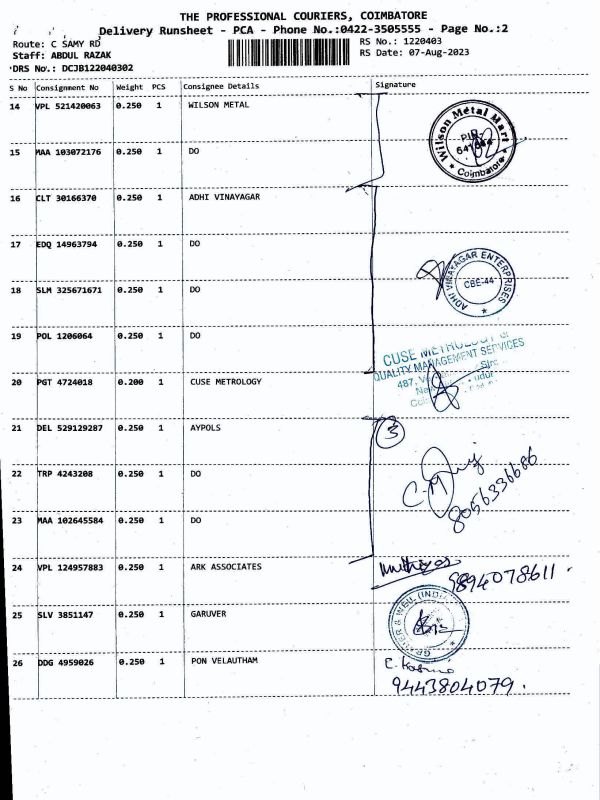 THE PROFESSIONAL COURIERS, COIMBATORE
Delivery Runsheet - PCA - Phone No.:0422-3505555 - Page No.:2
Route: C SAMY RD
RS No.: 1220403
Staff: ABDUL RAZAK
RS Date: 07-Aug-2023
DRS No.: DCJB122040302
S No Consignment No Weight PCS Consignee Details Signature
14 VPL 521420063 0.250 1 WILSON METAL
Wilson Metal Mart
Coimbatore
15 MAA 103072176 0.250 1 DO
16 CLT 30166370 0.250 1 ADHI VINAYAGAR
17 EDQ 14963794 0.250 1 DO
ADHI VINAYAGAR ENTERPRISES
CBE-44
18 SLM 325671671 0.250 1 DO
19 POL 1206064 0.250 1 DO
CUSE METROLOGY &
QUALITY MANAGEMENT SERVICES
487,
20 PGT 4724018 0.200 1 CUSE METROLOGY
21 DEL 529129287 0.250 1 AYPOLS
3
22 TRP 4243208 0.250 1 DO
8056336686
23 MAA 102645584 0.250 1 DO
24 VPL 124957883 0.250 1 ARK ASSOCIATES
9894078611.
25 SLV 3851147 0.250 1 GARUVER
26 DDG 4959026 0.250 1 PON VELAUTHAM
9443804079.